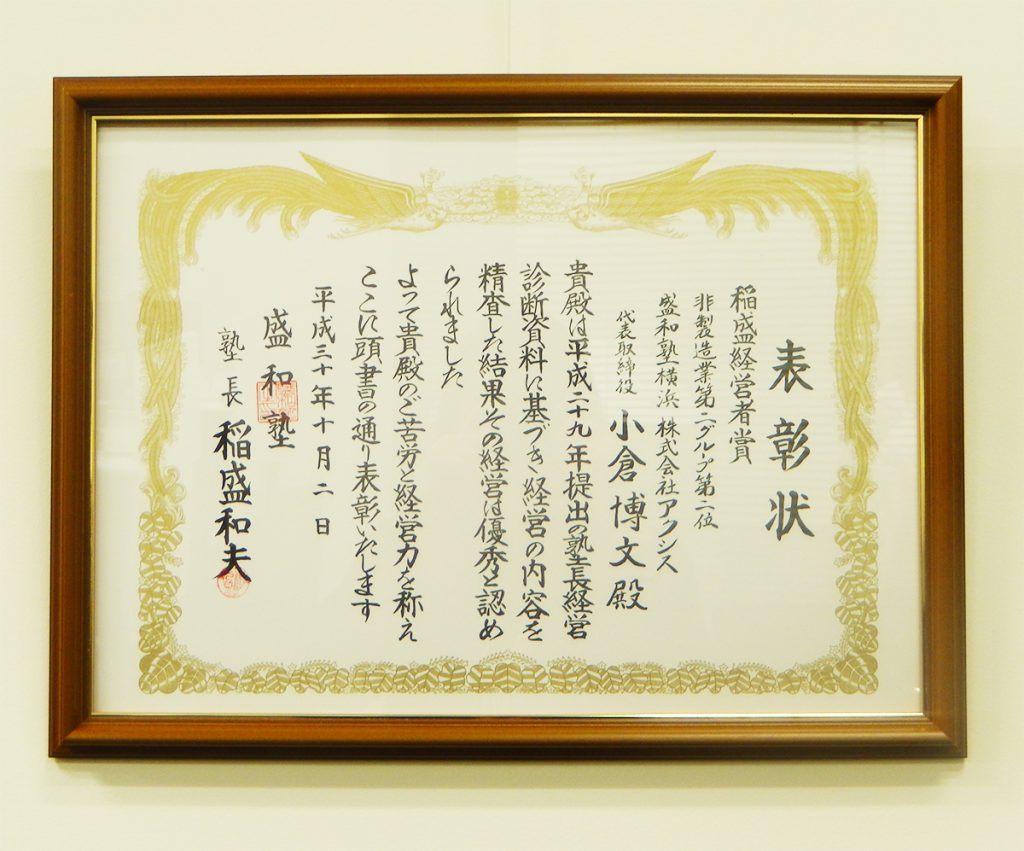 表彰状
稲盛経営者賞
非製造業第二グループ第二位
盛和塾横浜 株式会社アクシス
代表取締役 小倉博文殿
貴殿は平成二十九年提出の塾長経営
診断資料に基づき経営の内容を
精査した結果その経営は優秀と認め
られました
よって貴殿のご苦労と経営力を称え
ここに頭書の通り表彰いたします
平成三十年十月二日
盛和塾
塾長 稲盛和夫